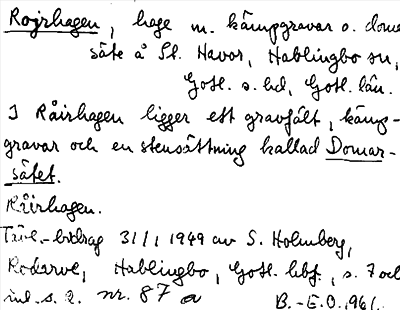 Rojrhagen, hage m. kämpgravar o. doma
säte å St. Havor, Hablingbo sn,
Gotl. s. hd, Gotl. län.
I Råirhagen ligger ett gravfält, kämp-
gravar och en stensättning kallad Domar-
sätet.
Råirhagen.
Tävl.-bidrag 31/1 1949 av S. Holmberg,
Rodarve, Hablingbo, Gotl. hbf., s. 7 och
inl. s. 2. nr. 87 a B.-E.O. 1961.